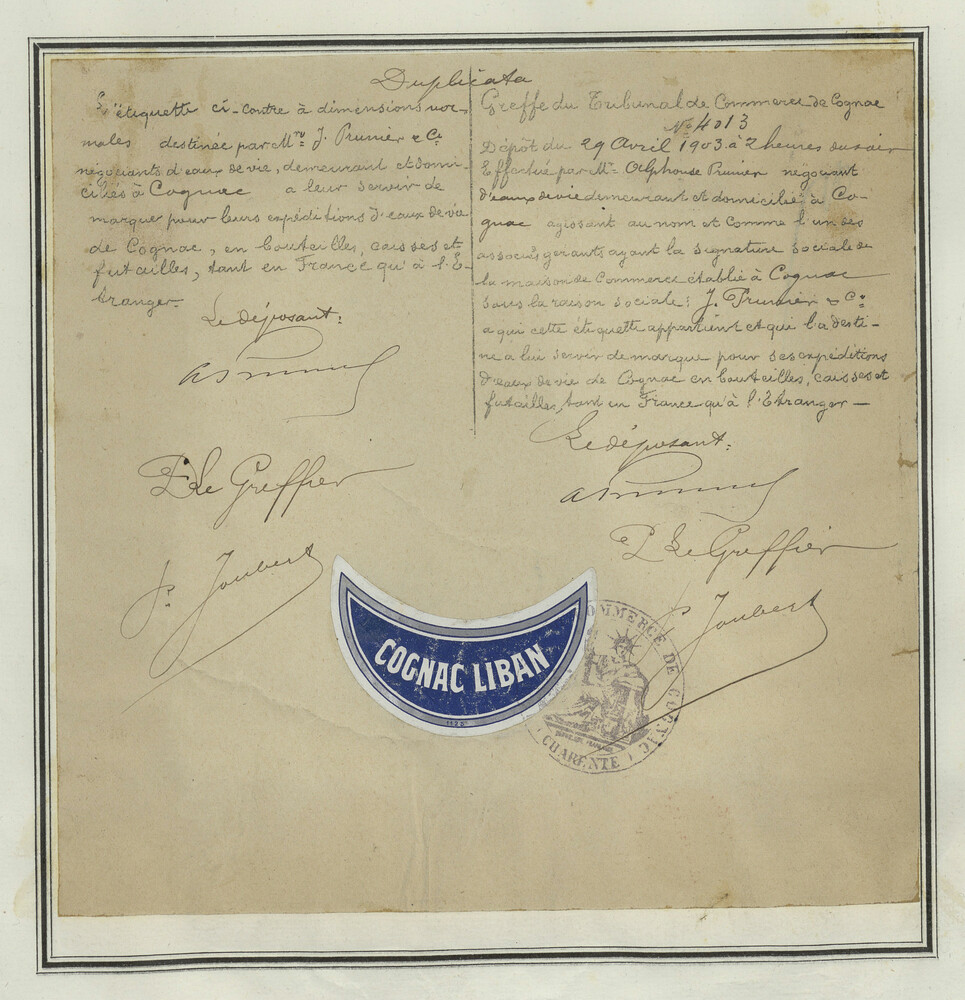 Duplicata
L'étiquette ci-contre à dimensions nor-
males destinée par Mrs J. Prunier & Ce
négociants d'eaux de vie, demeurant et domi-
ciliés à Cognac a leur servir de
marque pour leurs expéditions d'eaux de vie
de Cognac, en bouteilles, caisses et
futailles, tant en France qu'à l'E-
tranger.
Le déposant:
P Le Greffier
P. Joubert
Greffe du Tribunal de Commerce de Cognac
No 4013
Dépôt du 29 Avril 1903 à 2 heures du soir
Effectué par Mr Alphonse Prunier négociant
d'eaux de vie demeurant et domicilié à Co-
gnac agissant au nom et comme l'un des
associés gérants ayant la signature sociale de
la maison de Commerce établie à Cognac
sous la raison sociale: J. Prunier & Ce
a qui cette étiquette appartient et qui l'a desti-
né a lui servir de marque pour ses expéditions
d'eaux de vie de Cognac en bouteilles, caisses et
futailles, tant en France qu'à l'Etranger —
Le déposant:
P Le Greffier
P Joubert
COGNAC LIBAN
COMMERCE DE COGNAC
(CHARENTE)